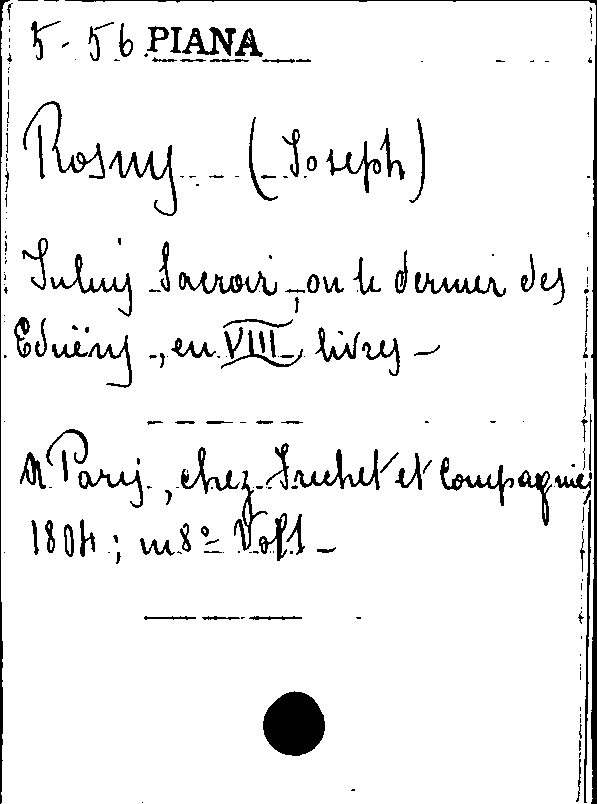 5-56 PIANA
Rosny (Joseph)
Julius Sacroir, ou le dernier des
Eduëns, en VIII livres —
A Paris, chez Fréchet et Compagnie
1804; in 8º Vol 1 —